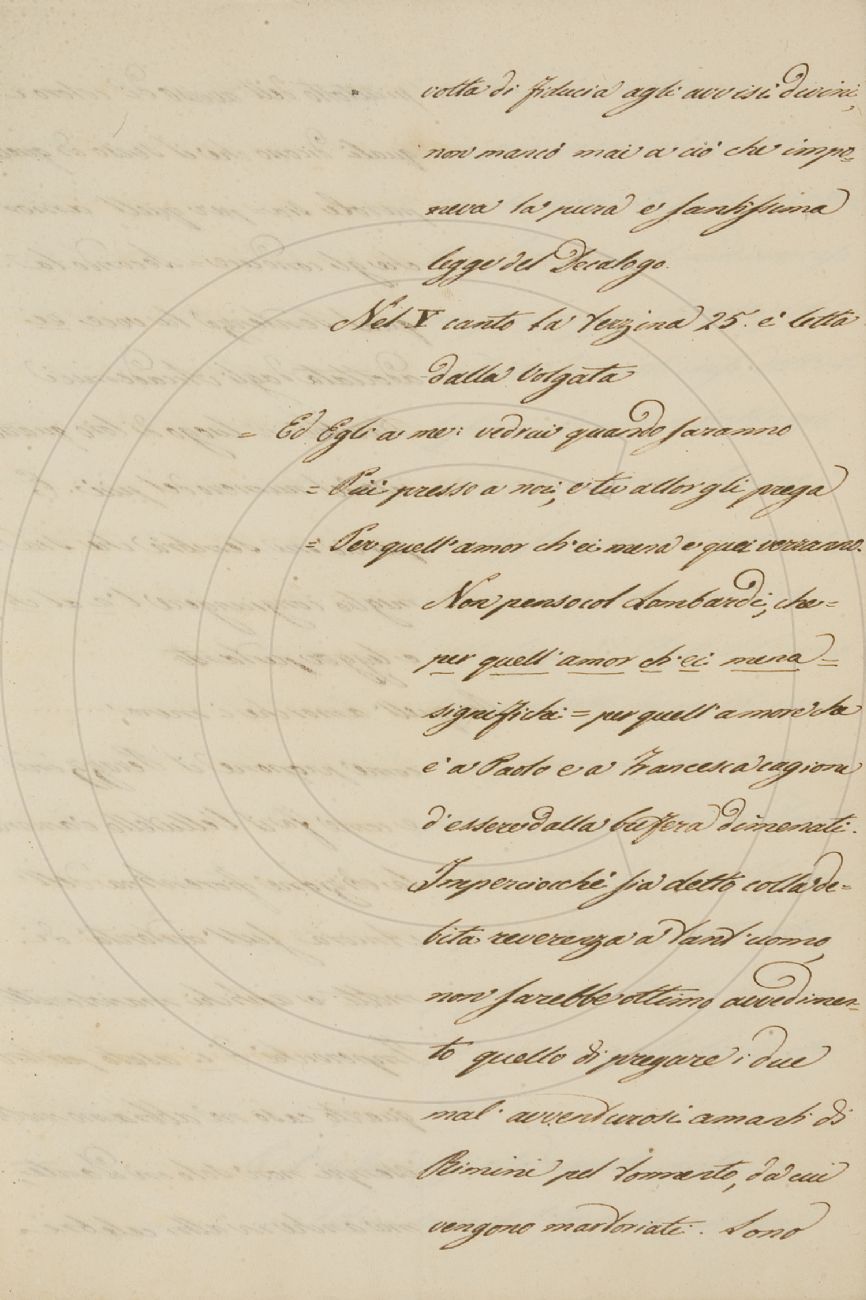 volta di fiducia agli avvisi divini,
non mancò mai a ciò che impo=
neva la pura e santissima
legge del Decalogo.
Nel V canto la terzina 25. è letta
dalla Volgata
= Ed Egli a me: vedrai quando saranno
= Più presso a noi; e tu allor gli prega
= Per quell'amor ch'ei mena e quei verranno.
Non penso col Lombardi, che=
per quell'amor ch'ei mena=
significhi = per quell'amore che
è a Paolo e a Francesca cagione
d'essere dalla bufera dimenati.
Imperciocchè sia detto colla de=
bita reverenza a tant'uomo,
non sarebbe ottimo avvedimen=
to quello di pregare i due
mal'avventurosi amanti di
Rimini pel tormento, da cui
vengono martoriati. Sono